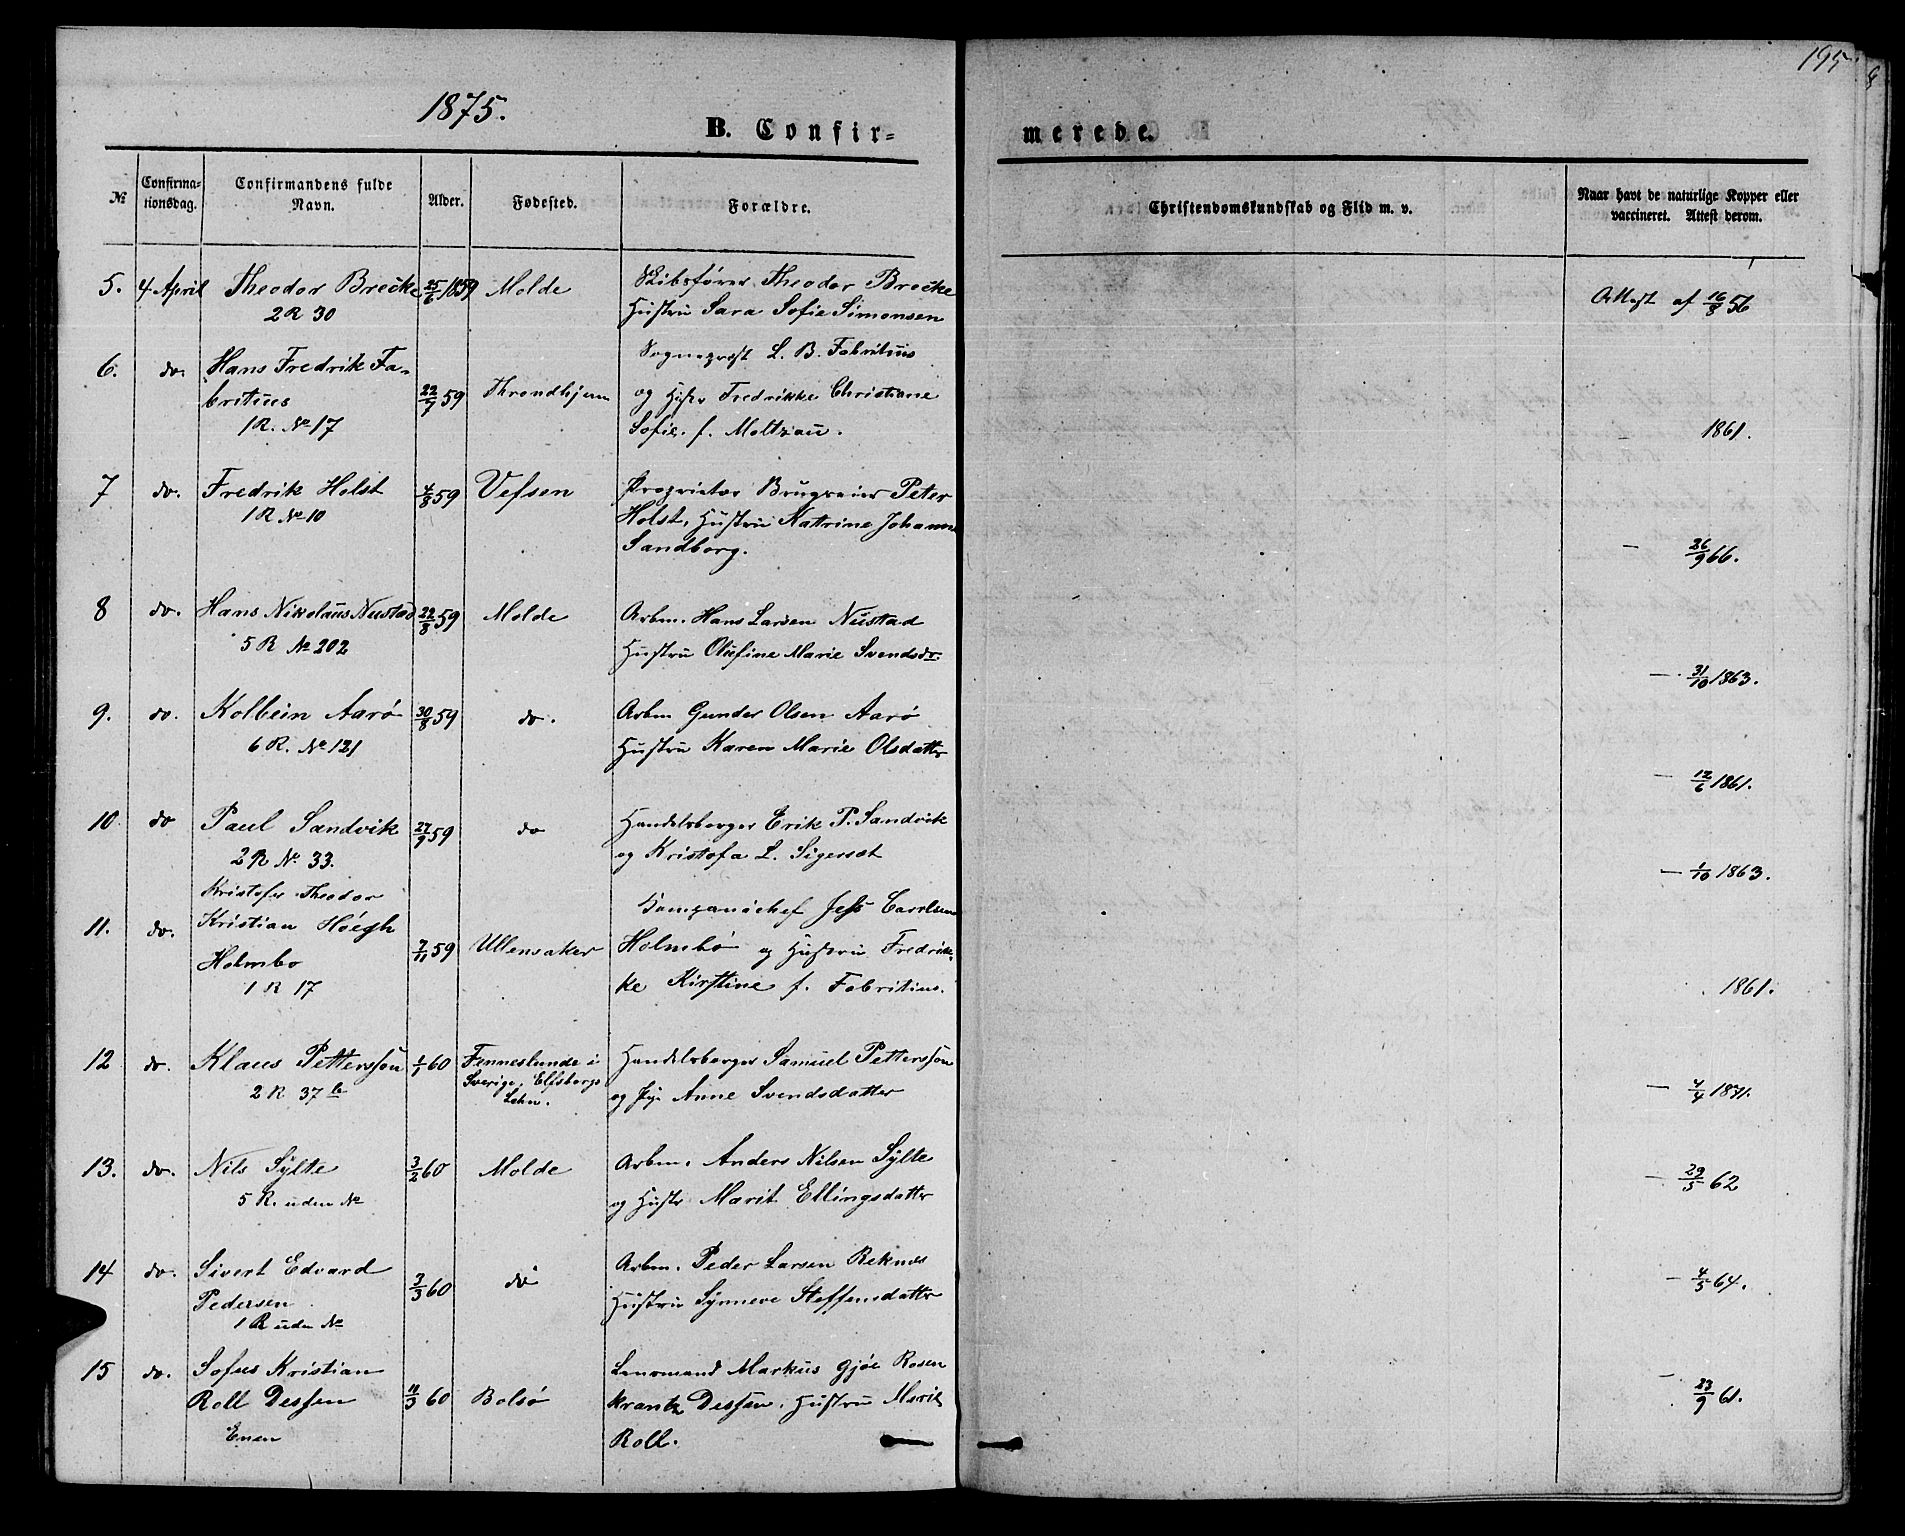 195.
8
1875.
B. Confir-
merede.
№
Confirma-
tionsdag.
Confirmandens fulde
Navn.
Alder.
Fødested.
Forældre.
Christendomskundskab og Flid m. v.
Naar havt de naturlige Kopper eller
vaccineret. Attest derom.
5. 4 April Theodor Brecke 25/6 1859 Molde Skibsfører Theodor Brecke
2 R 30 Hustru Sara Sofie Simonsen
Attest af 16/8 56
6. do. Hans Fredrik Fa- Sogneprest L. B. Fabritius
britius 22/7 59 Throndhjem og Hustr Fredrikke Christiane
1 R. No 17 Sofie. f. Moltzau.
- 1861.
7 do. Fredrik Holst 4/8 59 Vefsen Proprietær Peter
1 R No 10 Holst, Hustru Katrine Johanne
Sandborg.
- 26/9 66.
8 do. Hans Nikolaus Neustad 22/8 59 Molde Arbm. Hans Larsen Neustad
5 R No 202 Hustru Olufine Marie Svendsdr.
- 31/10 1863.
9. do. Kolbein Aarø 30/8 59 do. Arbm Gunder Olsen Aarø
6 R. No 121 Hustru Karen Marie Olsdatter
- 12/6 1861.
10 do Paul Sandvik 27/9 59 do Handelsborger Erik P. Sandvik
2 R No 33. og Kristofa L. Sigerset
- 1/10 1863.
Kristofer Theodor Kompanichef Jess Carlsen
11. do. Kristian Høegh 7/11 59 Ullensaker Holmbo og Hustru Fredrik-
Holmbo ke Kirstine f. Fabritius.
1 R 17
1861.
12 do. Klaus Pettersson 1/1 60 Fenneslunde i Handelsborger Samuel Pettersson
2 R 37 b Sverige, Elfsborgs og Anne Svendsdatter
Lehn.
- 4/4 1871.
13. do. Nils Sylte 3/2 60 Molde Arbm. Anders Nilsen Sylte
5 R. uden No og Hustr Marit Ellingsdatter
- 29/5 62
14 do. Sivert Edvard 3/3 60 do Arbm. Peder Larsen Reknes
Pedersen Hustru Synneve Steffensdatter
1 R uden No
- 4/5 64.
15 do. Sofus Kristian Lensmand Markus Gjøe Rosen
Roll Dessen 11/3 60 Bolsø krantz Dessen, Hustru Marit
Enen Roll.
- 23/9 61.